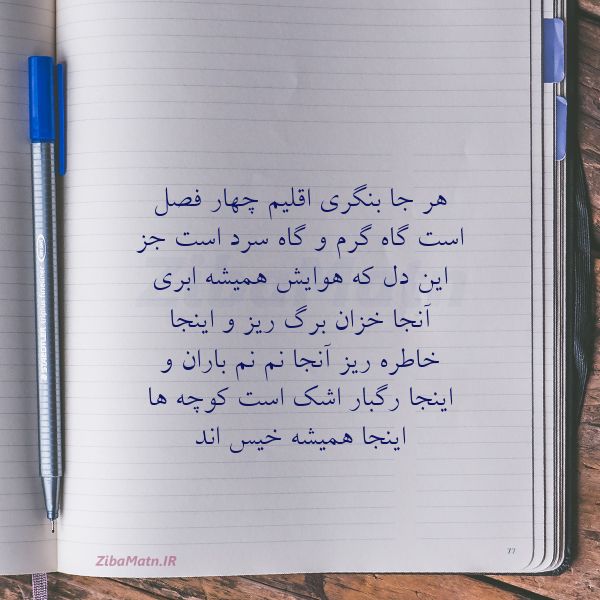 هر جا بنگری اقلیم چهار فصل
است گاه گرم و گاه سرد است جز
این دل که هوایش همیشه ابری
آنجا خزان برگ ریز و اینجا
خاطره ریز آنجا نم نم باران و
اینجا رگبار اشک است کوچه ها
اینجا همیشه خیس اند
ZibaMatn.IR